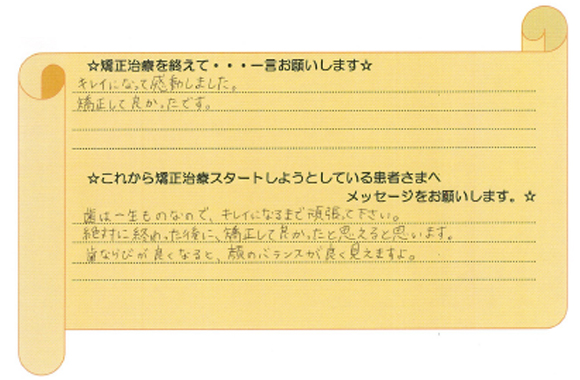 ☆矯正治療を終えて・・・一言お願いします☆
キレイになって感動しました。
矯正して良かったです。
☆これから矯正治療スタートしようとしている患者さまへ
メッセージをお願いします。☆
歯は一生ものなので、キレイになるまで頑張って下さい。
絶対に終わった後に、矯正して良かったと思えると思います。
歯ならびが良くなると、顔のバランスが良く見えますよ。